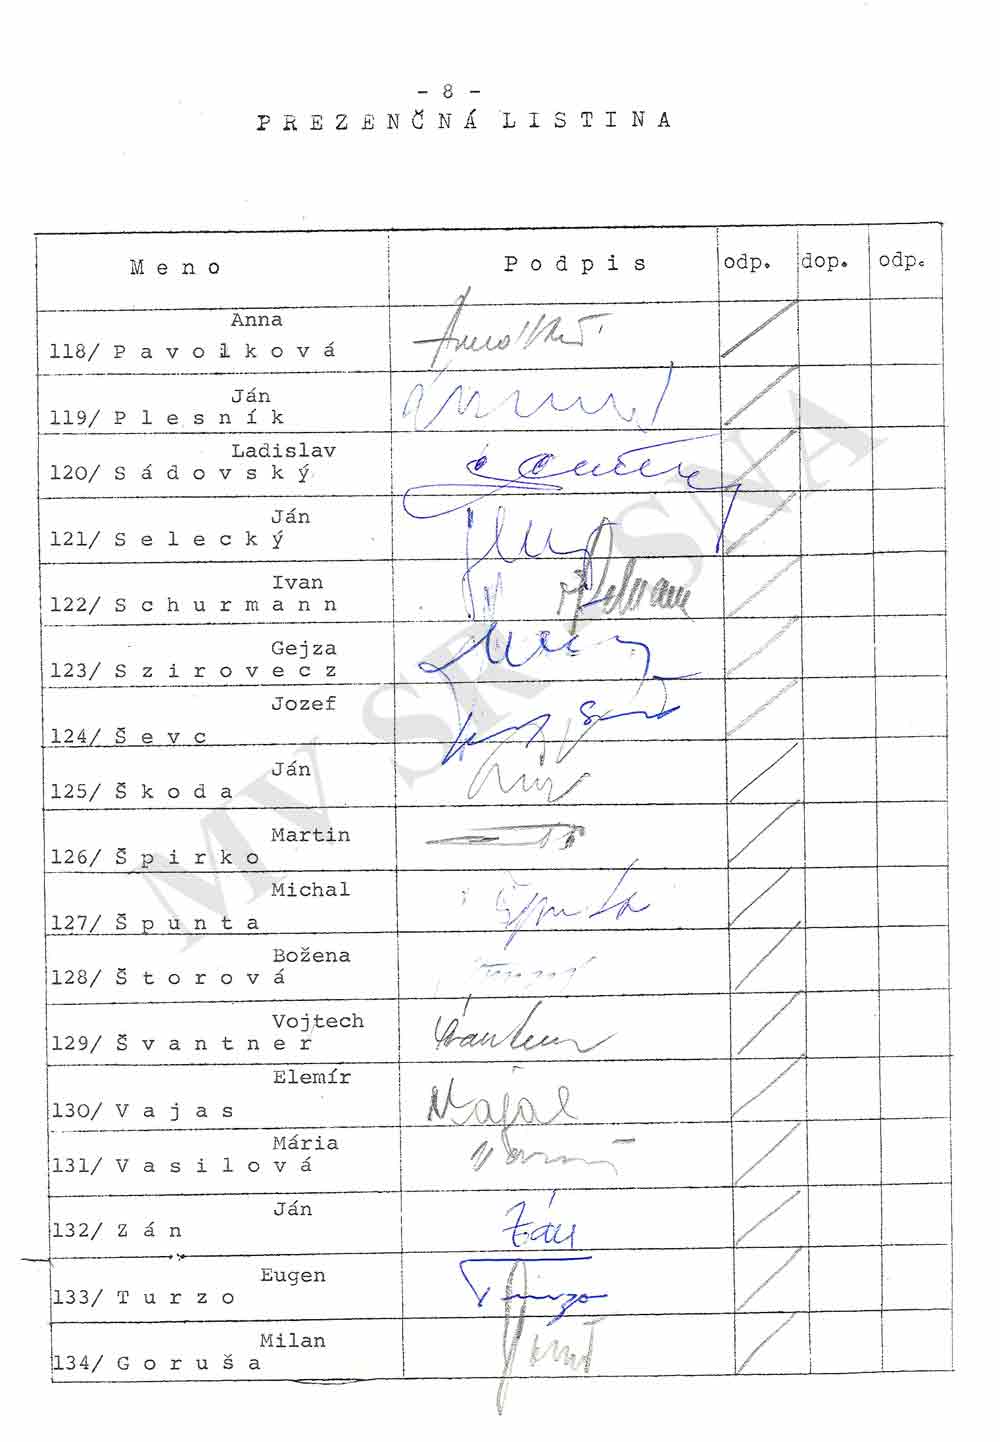 - 8 -
P R E Z E N Č N Á  L I S T I N A
M e n o P o d p i s odp. dop. odp.
Anna
118/ P a v o l k o v á
Ján
119/ P l e s n í k
Ladislav
120/ S á d o v s k ý
Ján
121/ S e l e c k ý
Ivan
122/ S c h u r m a n n
Gejza
123/ S z i r o v e c z
Jozef
124/ Š e v c
Ján
125/ Š k o d a
Martin
126/ Š p i r k o
Michal
127/ Š p u n t a
Božena
128/ Š t o r o v á
Vojtech
129/ Š v a n t n e r
Elemír
130/ V a j a s
Mária
131/ V a s i l o v á
Ján
132/ Z á n Zán
Eugen
133/ T u r z o Turzo
Milan
134/ G o r u š a
MV SR SNA